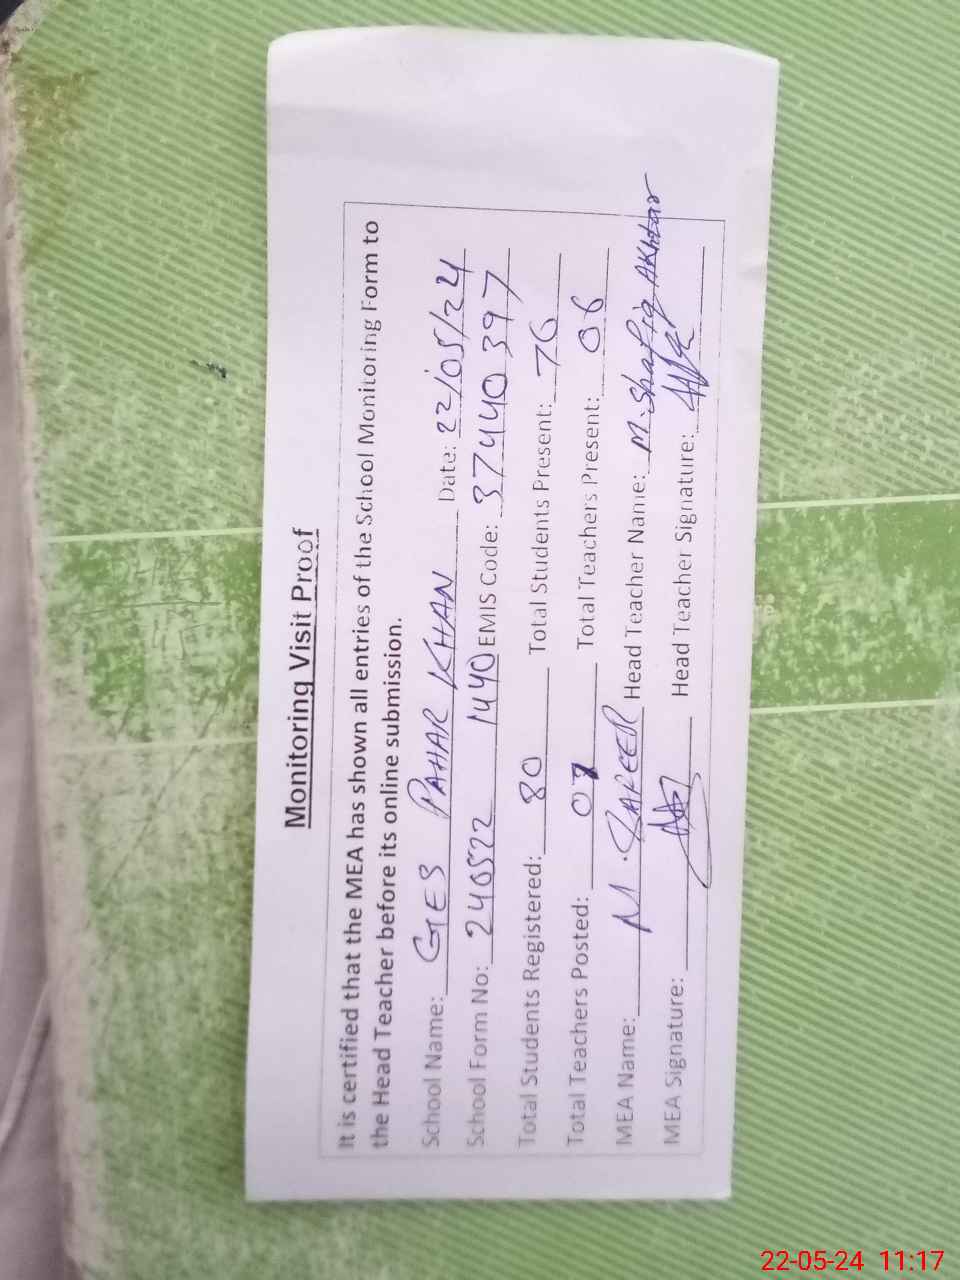 Monitoring Visit Proof
It is certified that the MEA has shown all entries of the School Monitoring Form to
the Head Teacher before its online submission.
School Name: GES PAHAR KHAN Date: 22/05/24
School Form No: 240522 1440 EMIS Code: 37440397
Total Students Registered: 80 Total Students Present: 76
Total Teachers Posted: 07 Total Teachers Present: 06
MEA Name: M. SAFEER Head Teacher Name: M. Shafiq Akhtar
MEA Signature: Head Teacher Signature:
22-05-24 11:17